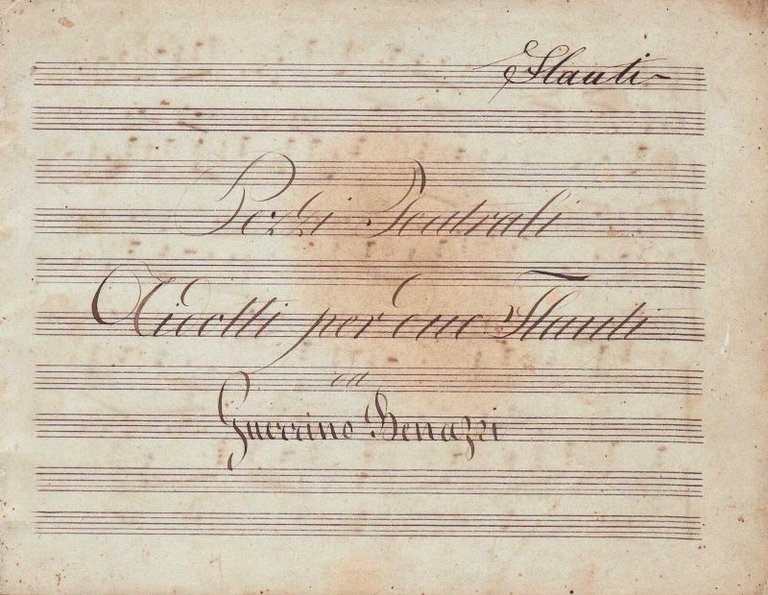 Flauti
Pezzi Teatrali
Ridotti per due Flauti
Guerrino Benazzi